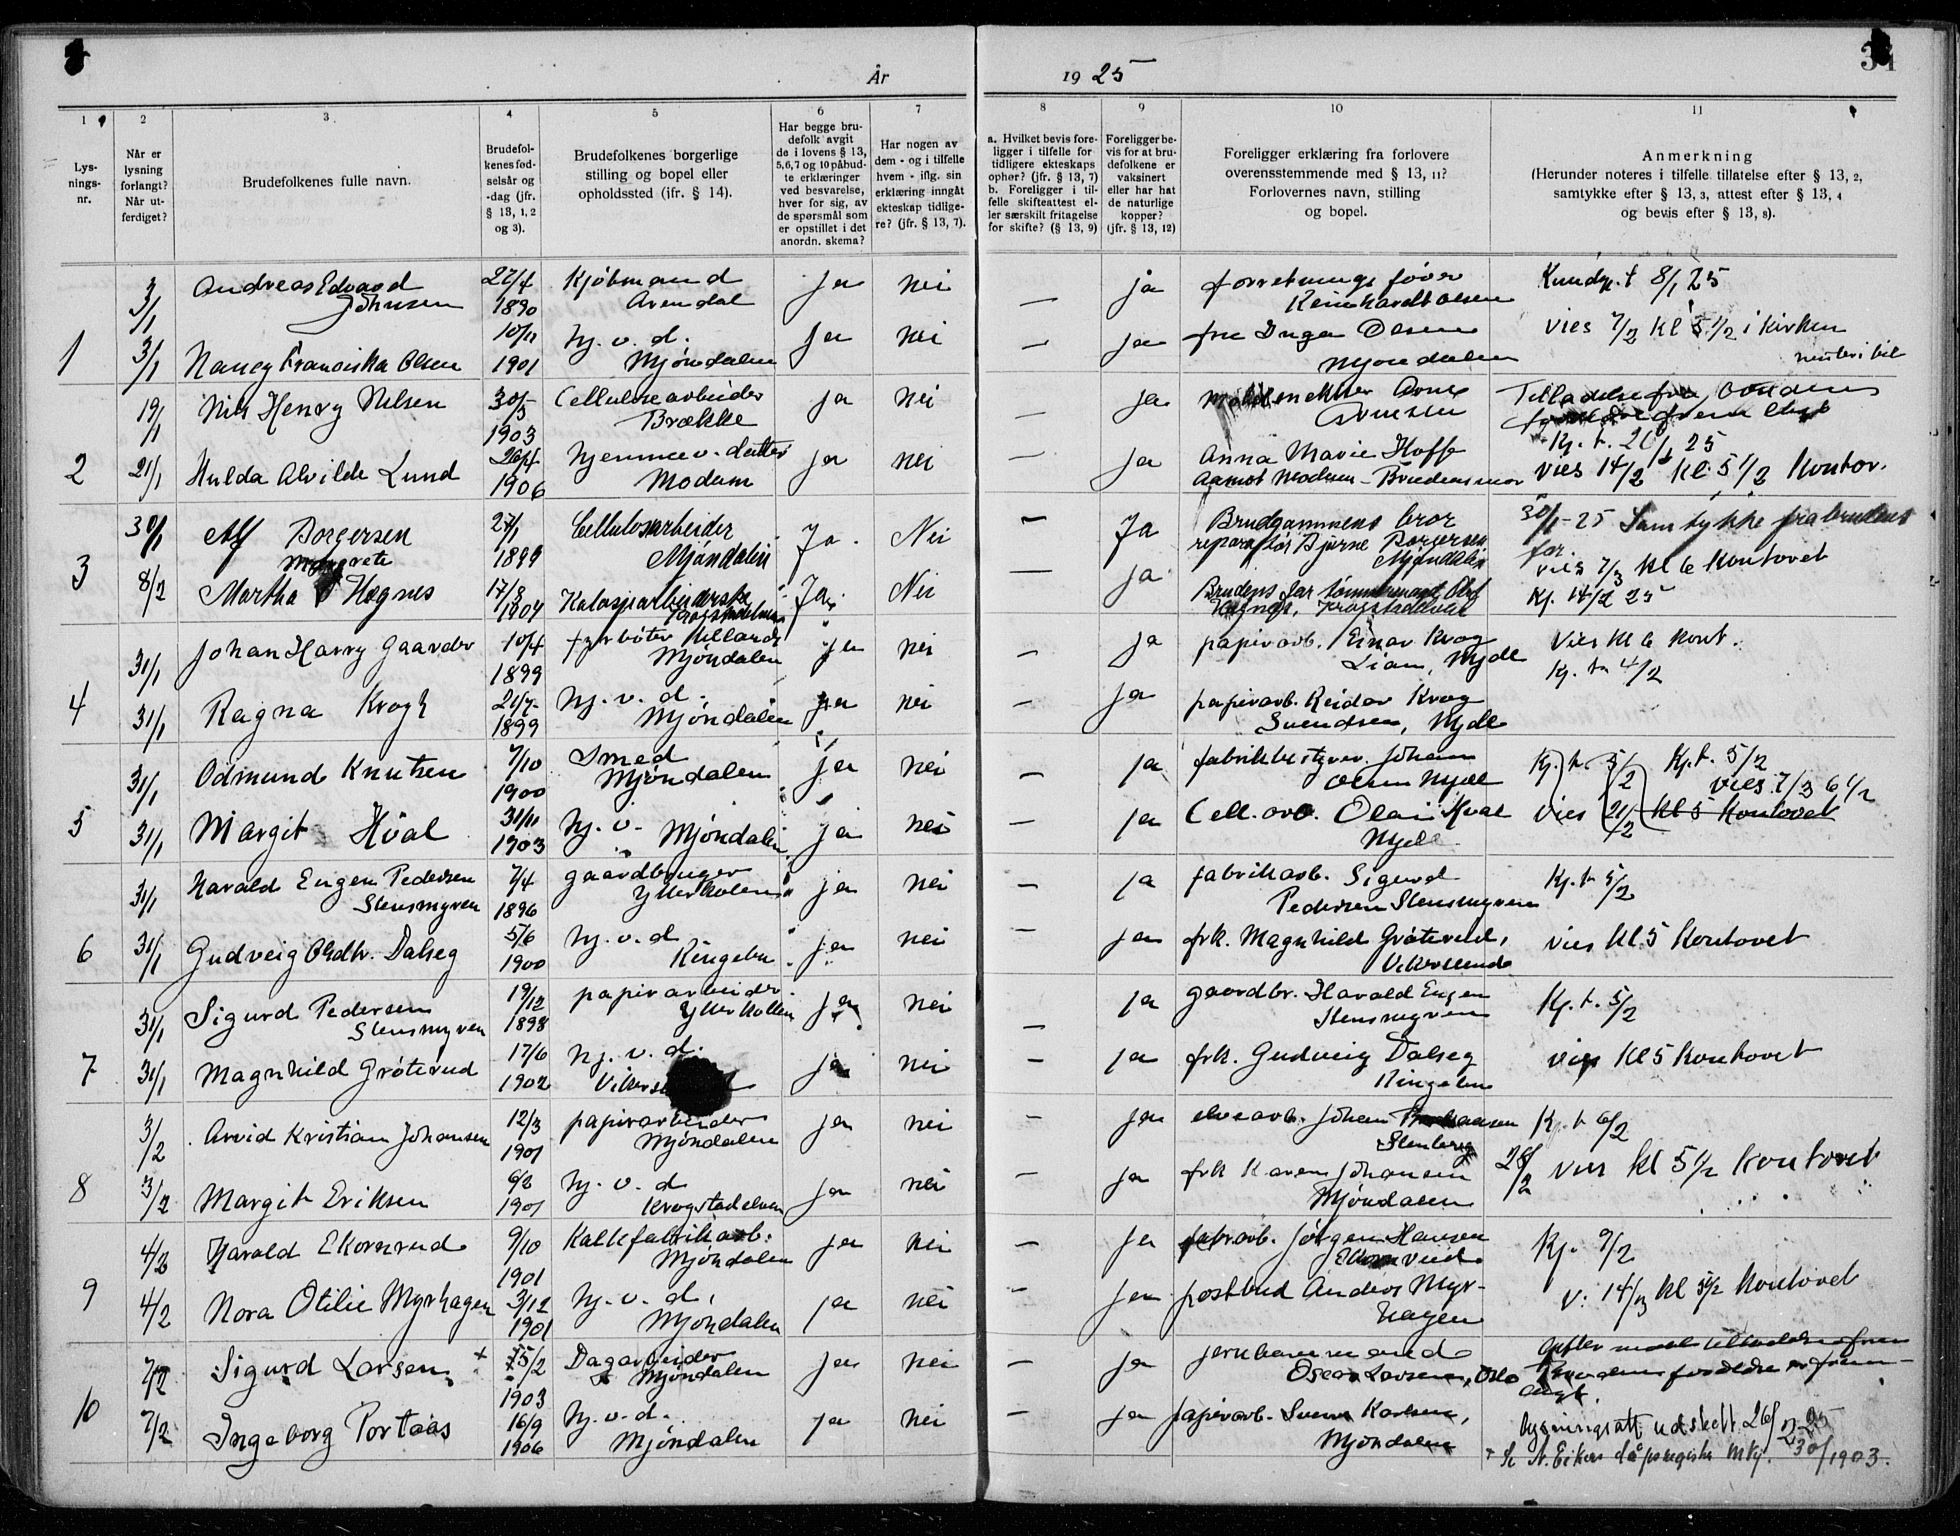 År 19 25
34
1 2 3 4 5 6 7 8 9 10 11
Lysningsnr.
Når er lysning forlangt? Når utferdiget?
Brudefolkenes fulle navn.
Brudefolkenes fødselsår og -dag (jfr. § 13, 1, 2 og 3).
Brudefolkenes borgerlige stilling og bopel eller opholdssted (ifr. § 14).
Har begge brudefolk avgit de i lovens § 13, 5,6,7 og 10 påbudte erklæringer ved besvarelse, hver for sig, av de spørsmål som er opstillet i det anordn. skema?
Har nogen av dem - og i tilfelle hvem - iflg. sin erklæring inngått ekteskap tidligere? (jfr. § 13, 7).
a. Hvilket bevis foreligger i tilfelle for tidligere ekteskaps ophør? (jfr. § 13, 7) b. Foreligger i tilfelle skifteattest eller særskilt fritagelse for skifte? (§ 13, 9)
Foreligger bevis for at brudefolkene er vaksinert eller har hat de naturlige kopper? (jfr. § 13, 12)
Foreligger erklæring fra forlovere overensstemmende med § 13, 11? Forlovernes navn, stilling og bopel.
Anmerkning (Herunder noteres i tilfelle tillatelse efter § 13, 2, samtykke efter § 13, 3, attest efter § 13, 4 og bevis efter § 13, 8).
1 3/1 Andreas Edvard Johnsen 27/4 1890 Kjøbmand Arendal ja nei — ja forretningsfører Reinhardt Olsen 8/1 25
3/1 Nancy Franciska Olsen 10/11 1901 hj. v. d. Mjøndalen ja nei — ja fru Inga Olsen Mjøndalen vies 7/2 kl 5 1/2 i kirken
2 19/1 Nils Henry Nilsen 30/5 1903 Cellulosearbeider Brække ja nei — ja Arne Arnesen Tilladelse fra
Kj. t. 25
21/1 Hulda Alvilde Lund 26/4 1906 hjemmev. datter Modum ja nei — ja Anna Marie Hoff Aamot Modum - Brudens mor vies 14/2 kl. 5 1/2 Kontor.
3 30/1 Alf Borgersen 27/1 1899 Cellulosarbeider Mjøndalen Ja. Nei — Ja Brudgommens bror reparatør Bjarne Borgersen Mjøndalen 30/1-25 Samtykke fra brudens far.
8/2 Martha Margrete Hognes 17/8 1904 Ja. Nei — ja Brudens far Krogstadelven vies 7/3 kl 6 Kontoret
Kj. 14/2 25
4 31/1 Johan Harry Gaarder 10/4 1899 fyrbøter Mjøndalen ja nei — ja papirarb. Einar Krog Lian, Mjdl vies kl 6 kont.
Kj. t. 4/2
31/1 Ragna Krogh 21/7 1899 hj. v. d. Mjøndalen ja nei — ja papirarb. Reidar Krog Svendsen, Mjdl
5 31/1 Odmund Knutsen 7/10 1900 Smed Mjøndalen ja nei — ja fabrikbestyrer Johan Olsen Mjdl Kj. t. 5/2 Kj. t. 5/2
vies 7/3 6 1/2
31/1 Margit Hval 31/11 1903 hj. v. Mjøndalen ja nei — ja Cell. arb. Olai Hval Mjdl vies 21/2 kl 5 Kontoret
6 31/1 Harald Eugen Pedersen Stensmyren 7/4 1896 gaardbruger Ytterkolen ja nei — ja fabrikarb. Sigurd Pedersen Stensmyren Kj. t. 5/2
31/1 Gudveig Dalseg 5/6 1900 hj. v. d Ringebu ja nei — ja frk. Magnhild Grøterud, Vikersund vies kl 5 Kontoret
7 31/1 Sigurd Pedersen Stensmyren 19/12 1898 papirarbeider Ytterkollen ja nei — ja gaardbr. Harald Eugen Stensmyren Kj. t. 5/2
31/1 Magnhild Grøterud 17/6 1902 hj. v. d. ja nei — ja frk. Gudveig Dalseg Ringebu vies kl 5 Kontoret
8 3/2 Arvid Kristian Johansen 12/3 1901 papirarbeider Mjøndalen ja nei — ja elvearb. Johan Stenberg Kj. t 6/2
3/2 Margit Eriksen 6/2 1901 hj. v. d Krogstadelven ja nei — ja frk Karen Johansen Mjøndalen 28/2 vies kl 5 1/2 Kontoret
9 4/2 Harald Ekornrud 9/10 1901 Kalkfabrikarb. Mjøndalen ja nei — ja fabrarb. Jørgen Hansen Ekornrud Kj. 9/2
4/2 Nora Otilie Myrhagen 3/12 1901 hj. v. d. Mjøndalen ja nei — ja postbud Anders Myrhagen v. 14/3 kl 5 1/2 Kontoret
10 7/2 Sigurd Larsen + 15/2 1903 Dagarbeider Mjøndalen ja nei — ja jernbanemand Oscar Larsen, Oslo
7/2 Ingeborg Portaas 16/9 1906 hj. v. d. Mjøndalen ja nei — ja papirarb. Svend Karlsen, Mjøndalen lysningsatt. udstedt 26/2 25
+ N. Eikers dåpsregister 30/1903.